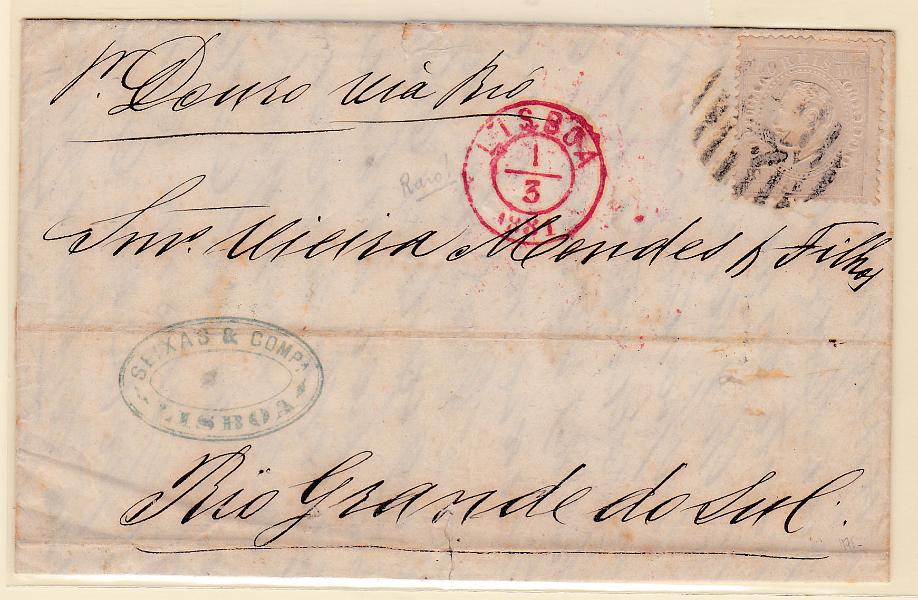 pr. Douro via Rio
LISBOA
1
3
1881
Raro!
Snrs. Vieira Mendes & Filhos
SEIXAS & COMPA
LISBOA
Rio Grande do Sul.